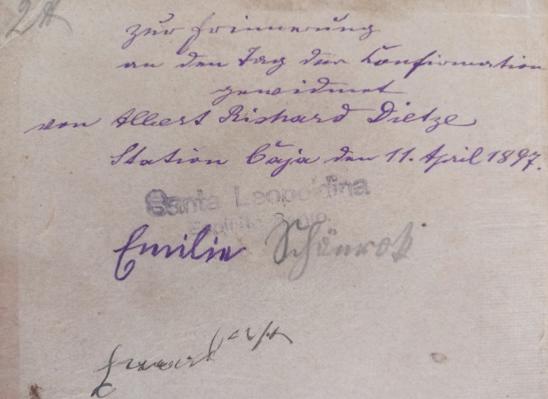 zur Erinnerung
an den Tag der Konfirmation
gewidmet
von Albert Richard Dietze
Station Caja den 11. April 1897.
Santa Leopoldina
Emilie